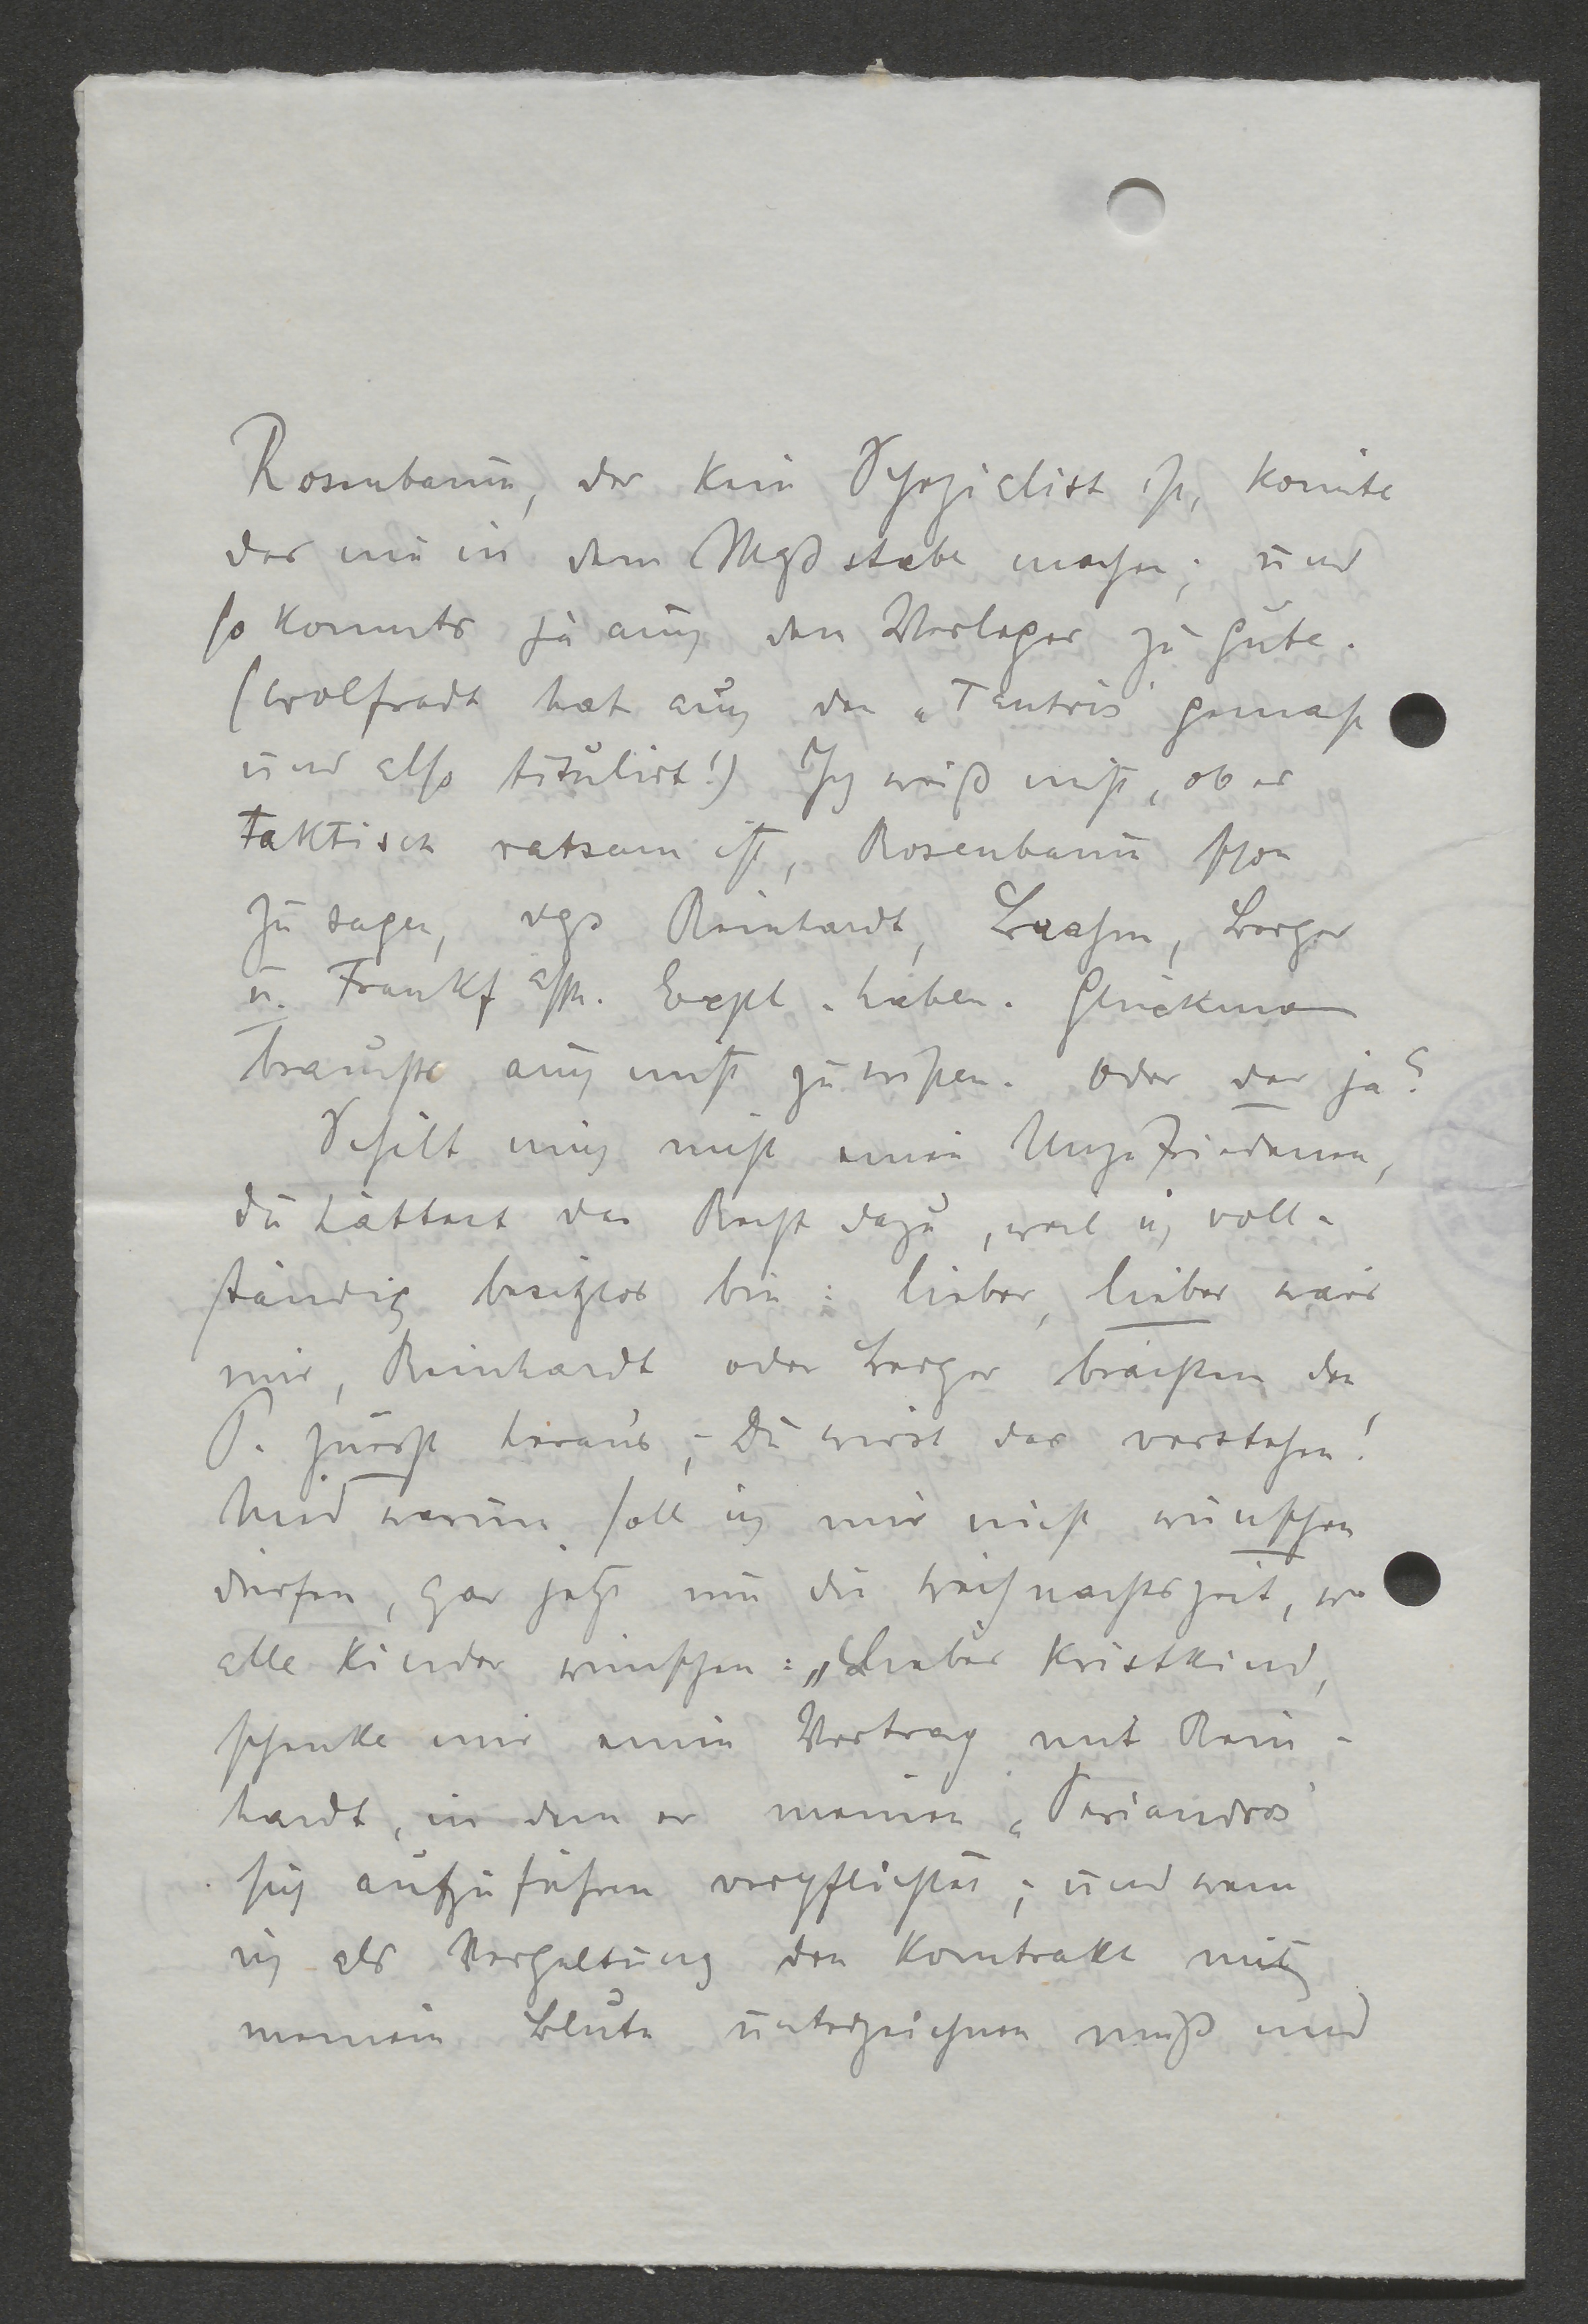 Rosenbaum, der kein Spezialist ist, konnte
das nie in dem Maßstabe machen; und
so kommts ja auch dem Verleger zu gute.
(Wolfradt hat auch den „Tantris“ gemacht
und also titulirt!) Ich weiß nicht, ob es
taktisch ratsam ist, Rosenbaum schon
zu sagen, dass Reinhardt, Brahm, Berger
u. Frankf. Expl. haben. Glückmann
brauchte auch nicht zu wissen. Oder der ja?
Schilt mich nicht einen Unzufriedenen,
du hättest das Recht dazu, weil ich voll-
ständig besitzlos bin: lieber, lieber wärs
mir, Reinhardt oder Berger brächten den
P. zuerst heraus; Du wirst das verstehen!
Und warum soll ich mir nicht wünschen
dürfen, gar jetzt um die Weihnachtszeit, wo
alle Kinder wünschen: „Liebes Kristkind,
schenke mir einen Vertrag mit Rein-
hardt, in dem er meinen „Periandros“
sich aufzuführen verpflichtet; und wenn
ich als Vergeltung den Kontrakt mit
meinem Blute unterzeichnen muß und